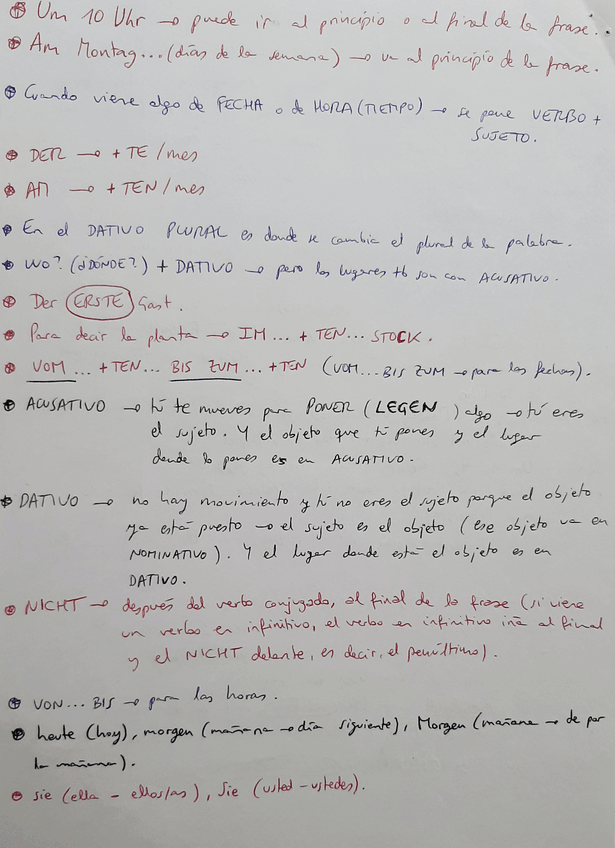 Um 10 Uhr → puede ir al principio o al final de la frase.
Am Montag... (días de la semana) → va al principio de la frase.
Cuando viene algo de FECHA o de HORA (TIEMPO) → se pone VERBO +
SUJETO.
DER → + TE / mes
AM → + TEN / mes
En el DATIVO PLURAL es donde se cambia el plural de la palabra.
WO? (¿DÓNDE?) + DATIVO → pero los lugares tb son con ACUSATIVO.
Der ERSTE Gast.
Para decir la planta → IM ... + TEN ... STOCK.
VOM ... + TEN ... BIS ZUM ... + TEN (VOM ... BIS ZUM → para las fechas).
ACUSATIVO → tú te mueves para PONER (LEGEN ) algo → tú eres
el sujeto. Y el objeto que tú pones y el lugar
donde lo pones es en ACUSATIVO.
DATIVO → no hay movimiento y tú no eres el sujeto porque el objeto
ya está puesto → el sujeto es el objeto (ese objeto va en
NOMINATIVO). Y el lugar donde está el objeto es en
DATIVO.
NICHT → después del verbo conjugado, al final de la frase (si viene
un verbo en infinitivo, el verbo en infinitivo irá al final
y el NICHT delante, es decir, el penúltimo).
VON ... BIS → para las horas.
heute (hoy), morgen (mañana → día siguiente), Morgen (mañana → de por
la mañana).
sie (ella - ellos/as), Sie (usted - ustedes).